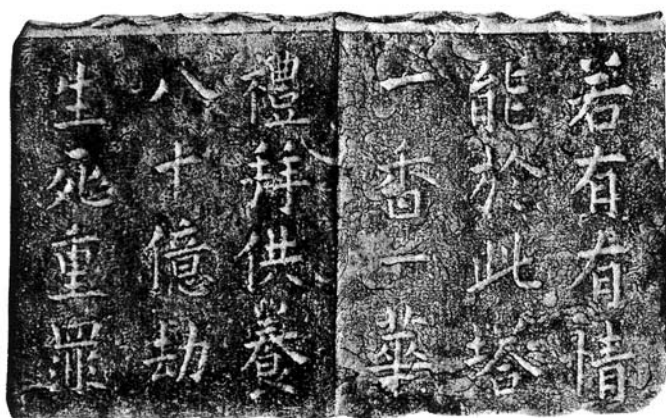 若有有情
能於此塔
一香一華
禮拜供養
八十億劫
生死重罪